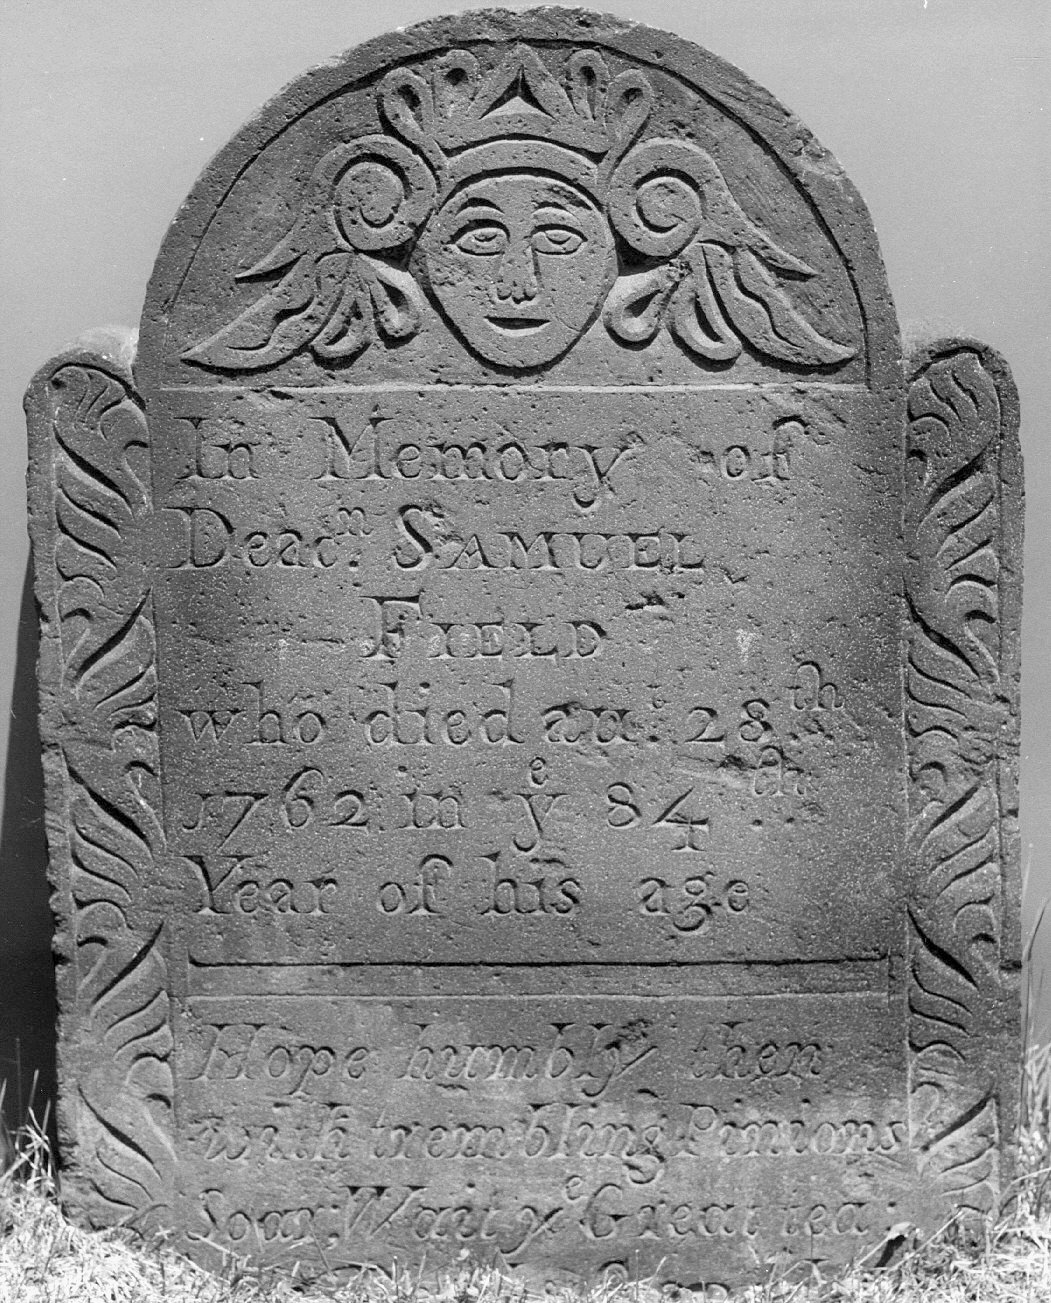 In Memory of
Deac.ⁿ SAMUEL
FIELD
who died au.ᵗ 28.ᵗʰ
1762 in yᵉ 84.ᵗʰ
Year of his age
Hope humbly then
with trembling Pinions
Soar, Wait yᵉ Great tea.